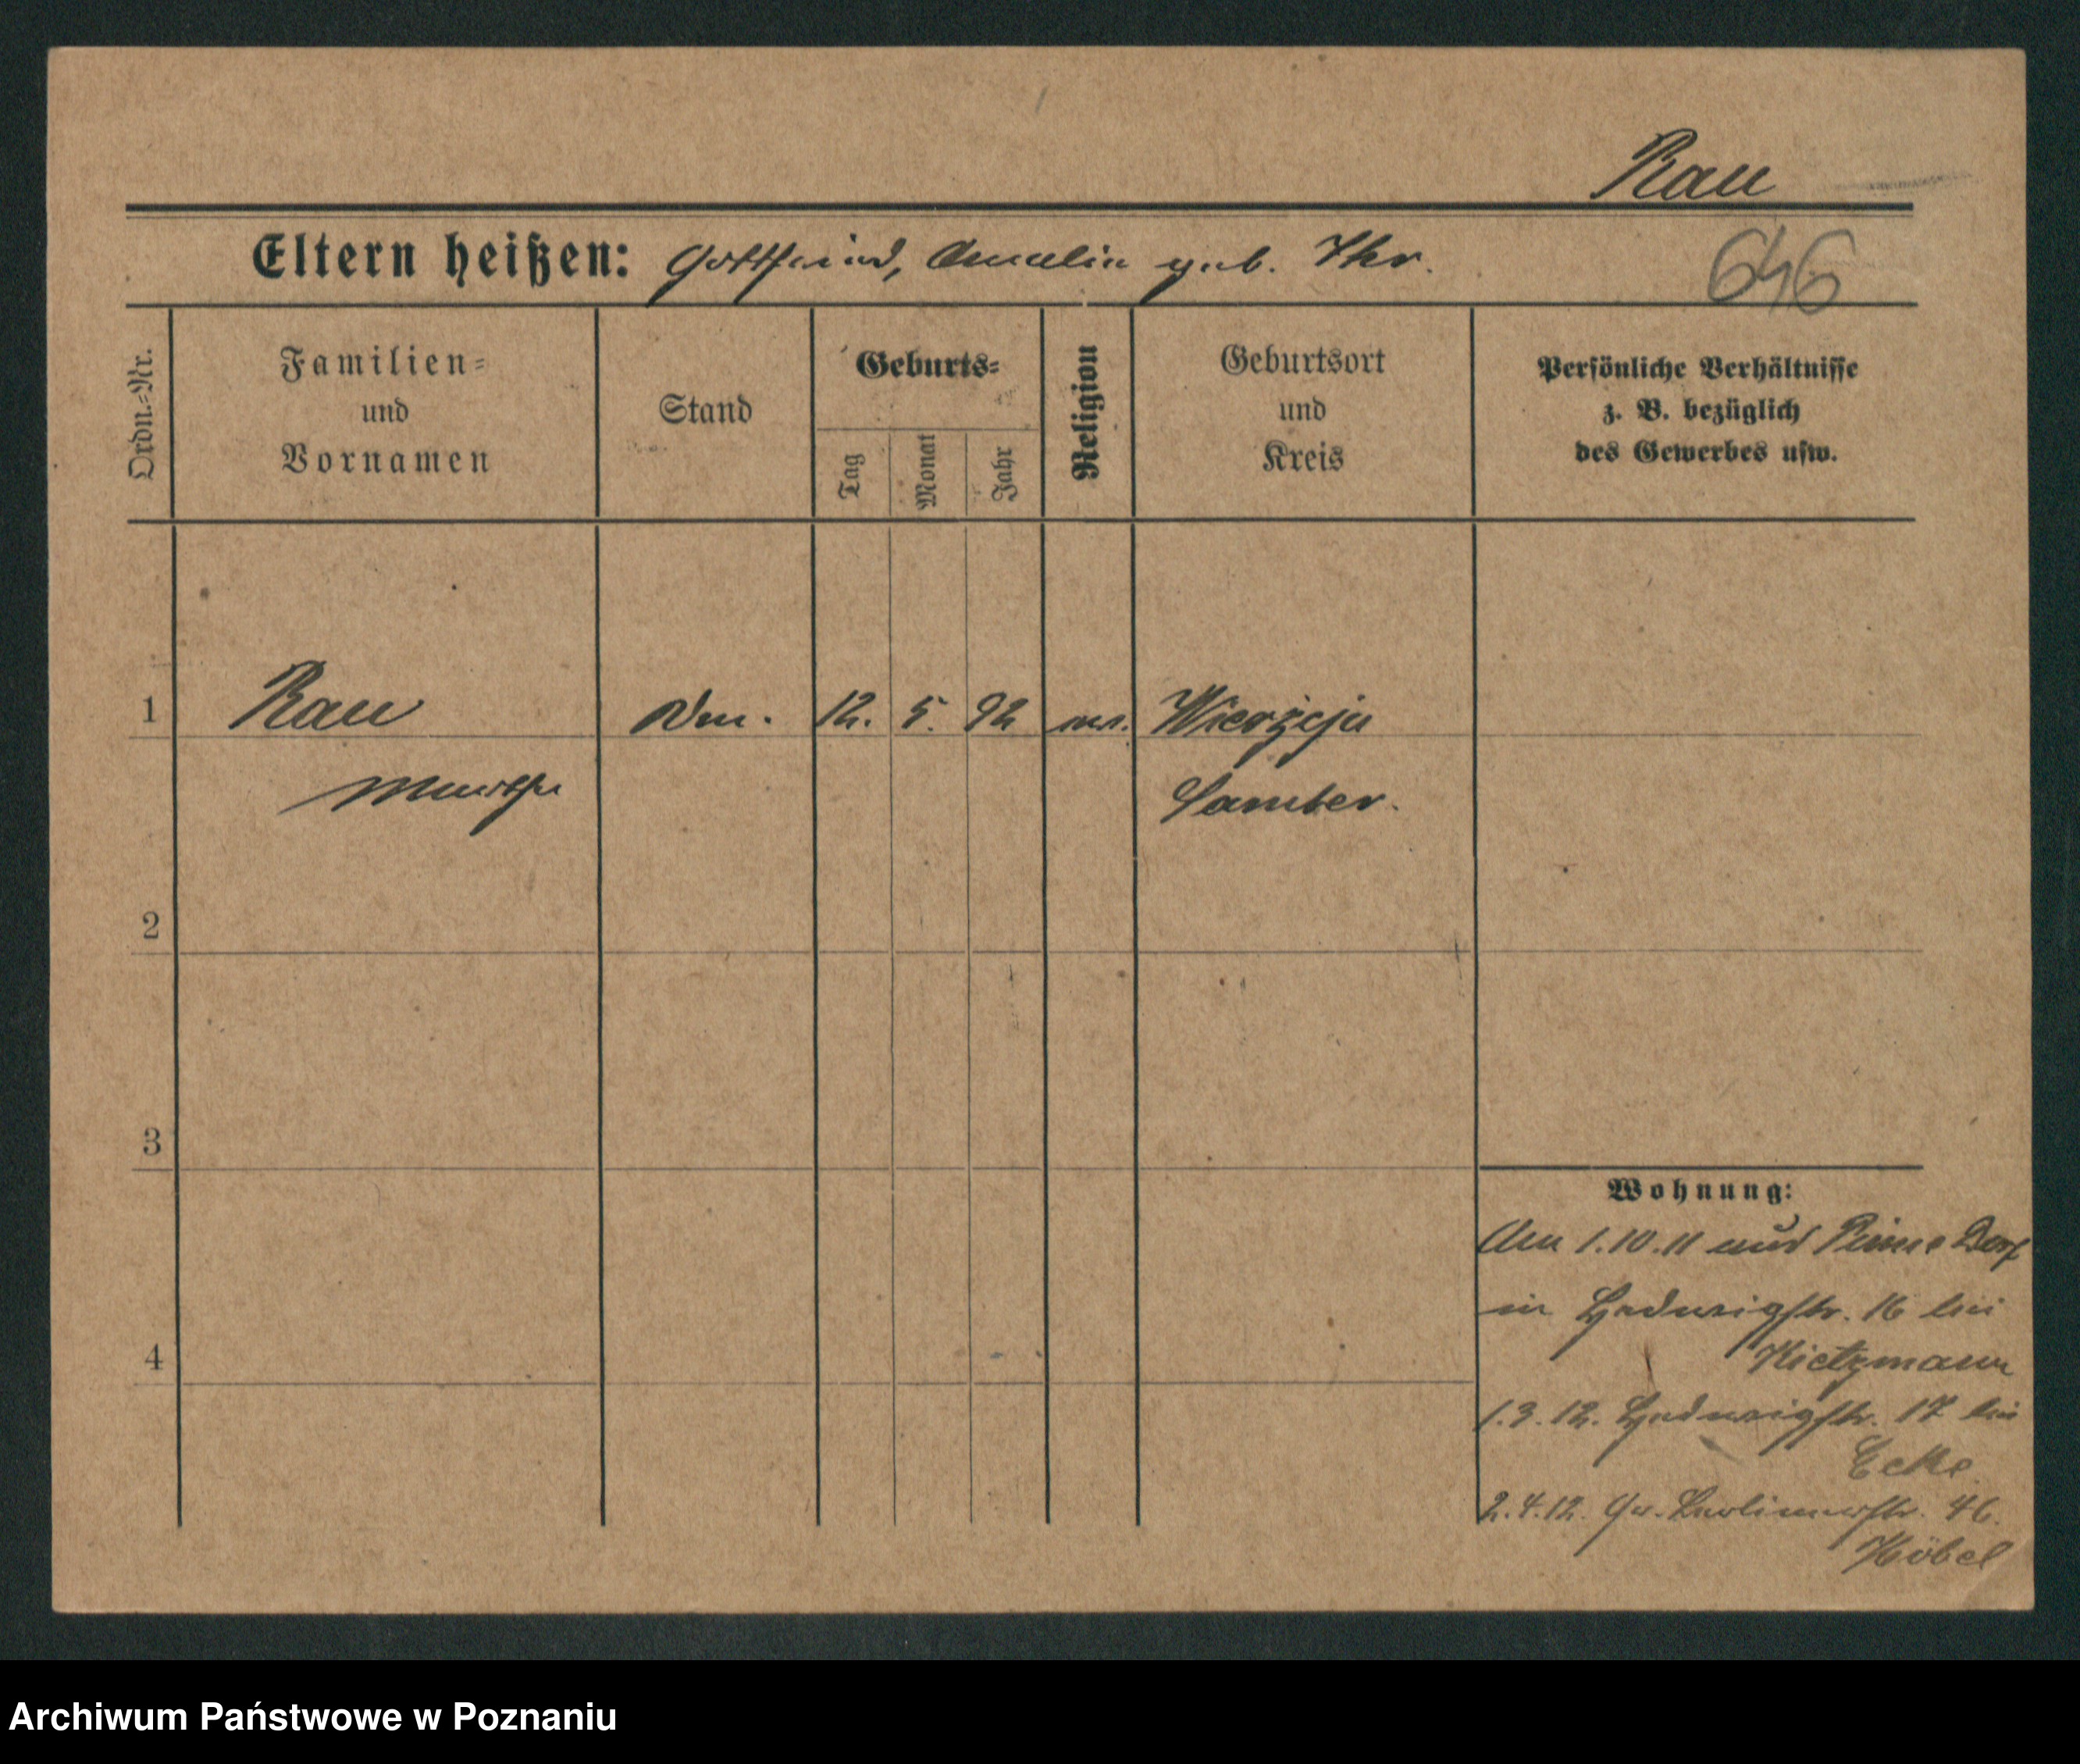 Rau
Eltern heißen: Gottfried, Amalie geb. Ihr.
646
Ordn.=Nr.
Familien=
und
Vornamen
Stand
Geburts=
Tag
Monat
Jahr
Religion
Geburtsort
und
Kreis
Persönliche Verhältnisse
z. B. bezüglich
des Gewerbes usw.
1 Rau 12. 5. 92 ev. Wierzeja
Martha Samter.
2
3
4
Wohnung:
Am 1.10.11 aus Pinne Dorf
in Hedwigstr. 16 bei
Kietzmann
1.3.12. Hedwigstr. 17 bei
Ecke
2.4.12. Gr. Berlinerstr. 46.
Höbel
Archiwum Państwowe w Poznaniu